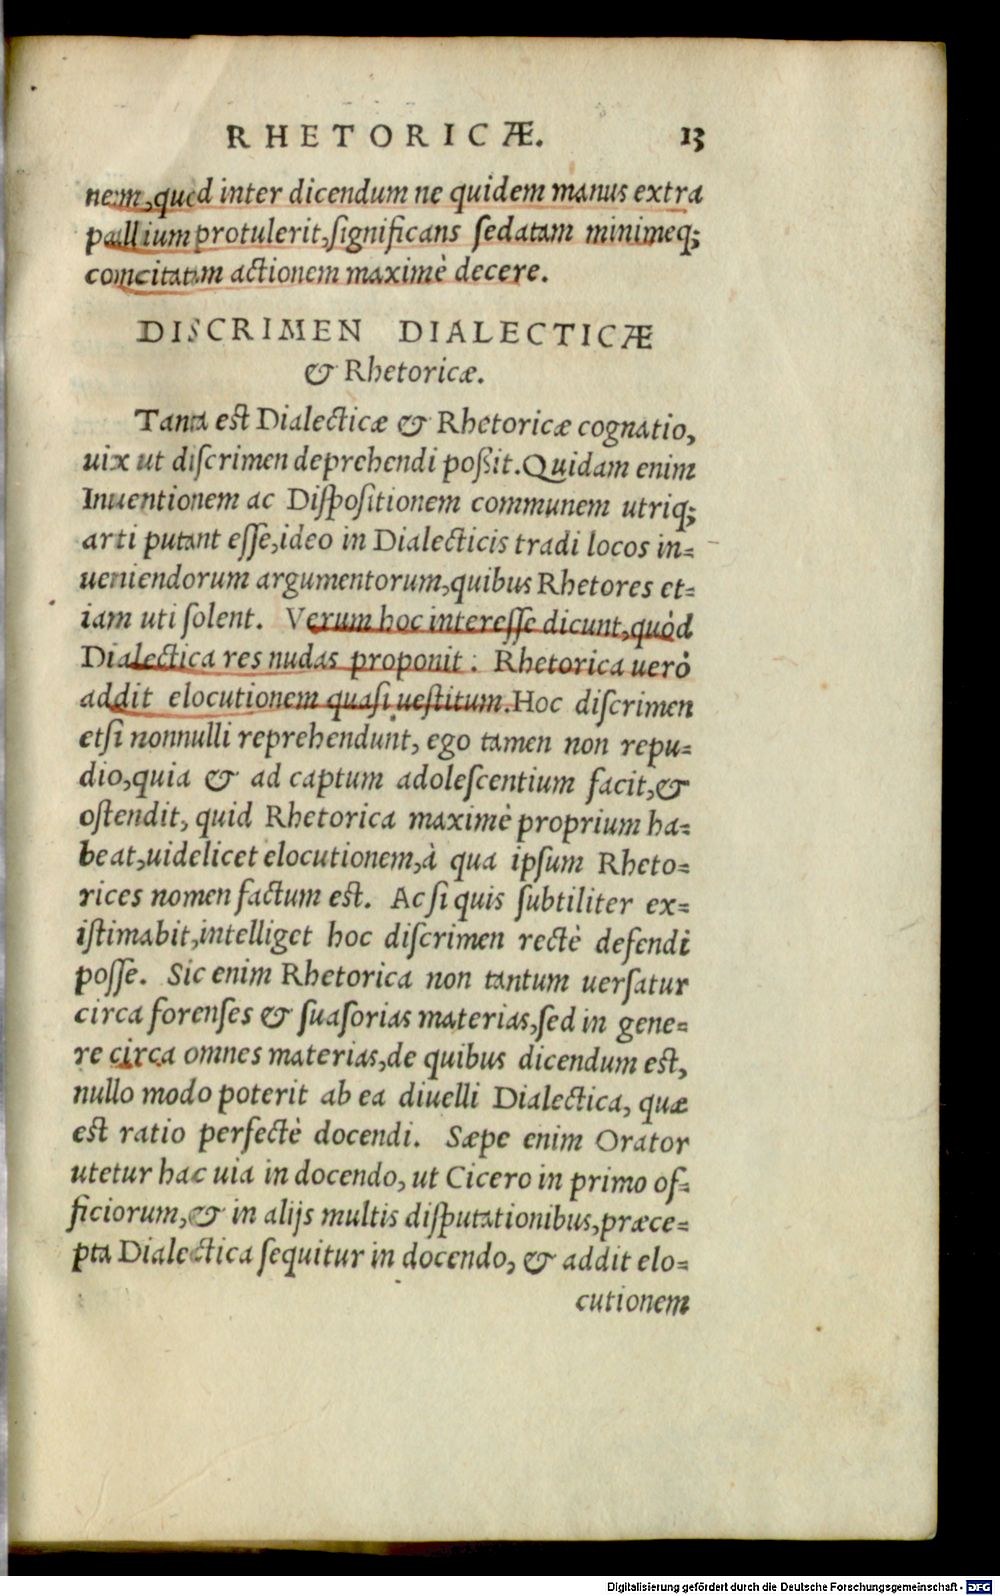 RHETORICÆ. 13
nem, quod inter dicendum ne quidem manus extra
pallium protulerit, ſignificans ſedatam minimeq;
concitatam actionem maximè decere.
DISCRIMEN DIALECTICÆ
& Rhetoricæ.
Tanta eſt Dialecticæ & Rhetoricæ cognatio,
uix ut diſcrimen deprehendi poßit. Quidam enim
Inuentionem ac Diſpoſitionem communem utriq;
arti putant eſſe, ideo in Dialecticis tradi locos in=
ueniendorum argumentorum, quibus Rhetores et=
iam uti ſolent. Verum hoc intereſſe dicunt, quòd
Dialectica res nudas proponit: Rhetorica uerò
addit elocutionem quaſi ueſtitum. Hoc diſcrimen
etſi nonnulli reprehendunt, ego tamen non repu=
dio, quia & ad captum adoleſcentium facit, &
oſtendit, quid Rhetorica maximè proprium ha=
beat, uidelicet elocutionem, à qua ipſum Rheto=
rices nomen factum eſt. Ac ſi quis ſubtiliter ex=
iſtimabit, intelliget hoc diſcrimen rectè defendi
poſſe. Sic enim Rhetorica non tantum uerſatur
circa forenſes & ſuaſorias materias, ſed in gene=
re circa omnes materias, de quibus dicendum eſt,
nullo modo poterit ab ea diuelli Dialectica, quæ
eſt ratio perfectè docendi. Sæpe enim Orator
utetur hac uia in docendo, ut Cicero in primo of=
ficiorum, & in alijs multis diſputationibus, præce=
pta Dialectica ſequitur in docendo, & addit elo=
cutionem
Digitalisierung gefördert durch die Deutsche Forschungsgemeinschaft - DFG